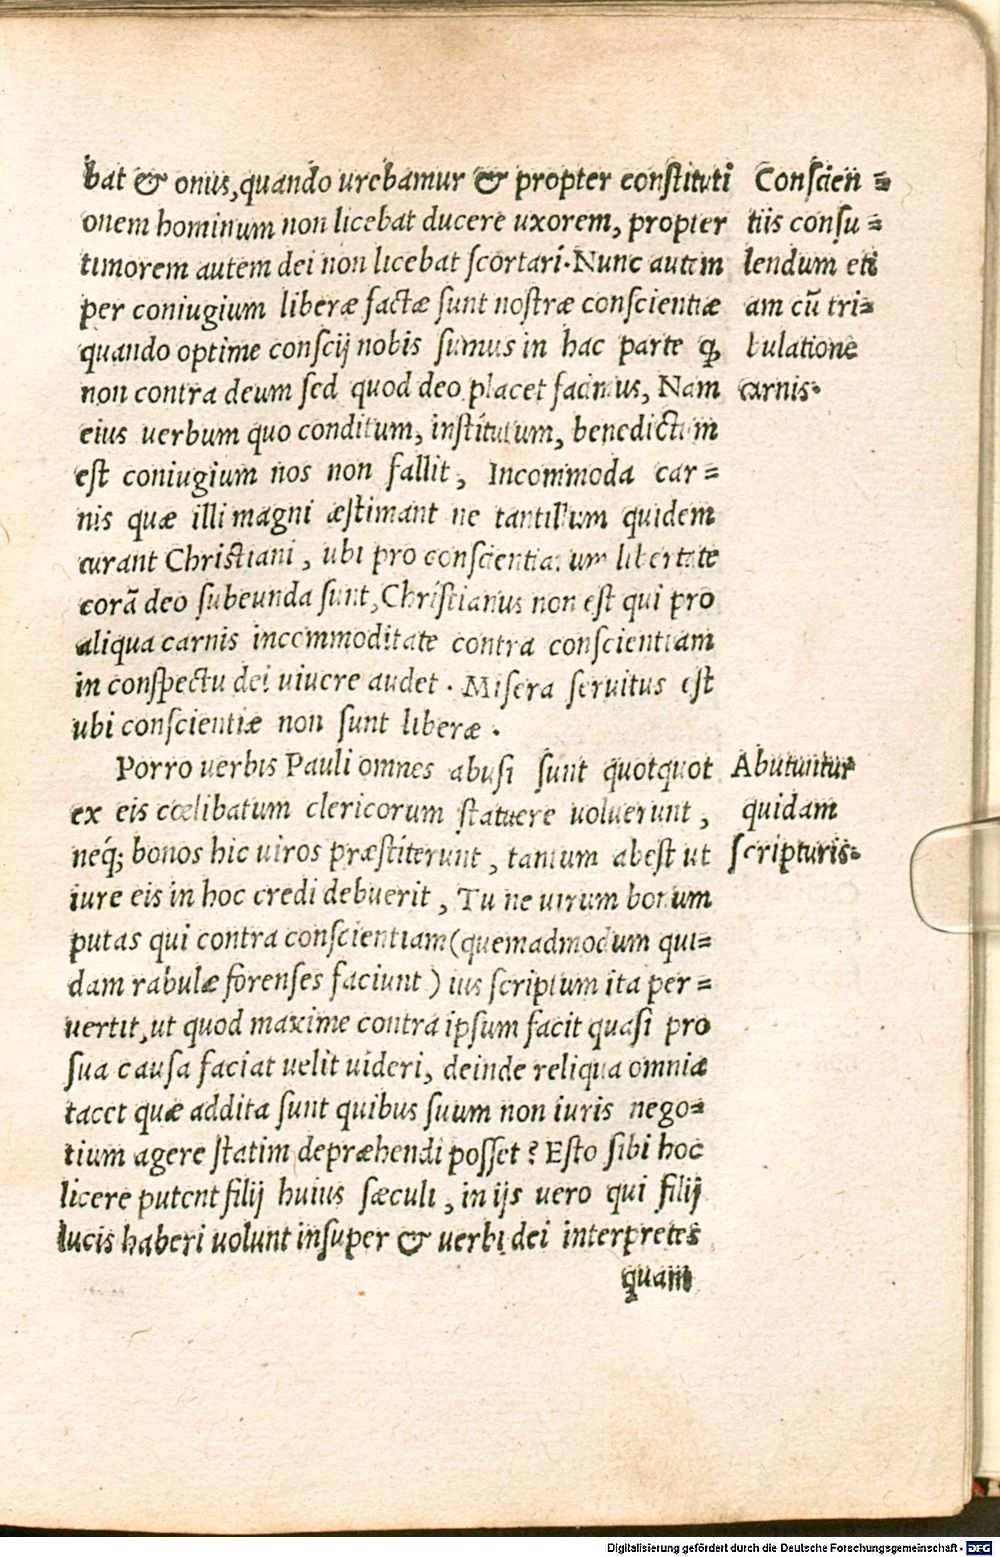 bat & onus, quando urebamur & propter constituti
onem hominum non licebat ducere uxorem, propter
timorem autem dei non licebat scortari. Nunc autem
per coniugium liberæ factæ sunt nostræ conscientiæ
quando optime conscij nobis sumus in hac parte ꝙ
non contra deum sed quod deo placet facimus, Nam
eius verbum quo conditum, institutum, benedictum
est coniugium nos non fallit, Incommoda car=
nis quæ illi magni æstimant ne tantillum quidem
curant Christiani, ubi pro conscientiarum libertate
corã deo subeunda sunt, Christianus non est qui pro
aliqua carnis incommoditate contra conscientiam
in conspectu dei uiuere audet. Misera seruitus est
ubi conscientiæ non sunt liberæ.
Conscien=
tiis consu=
lendum eti
am cũ tri=
bulatione
carnis.
Porro uerbis Pauli omnes abusi sunt quotquot
ex eis cœlibatum clericorum statuere uoluerunt,
neq́; bonos hic uiros præstiterunt, tantum abest ut
iure eis in hoc credi debuerit, Tu ne uirum bonum
putas qui contra conscientiam (quemadmodum qui=
dam rabulæ forenses faciunt) ius scriptum ita per=
vertit, ut quod maxime contra ipsum facit quasi pro
sua causa faciat uelit uideri, deinde reliqua omnia
tacet quæ addita sunt quibus suum non iuris nego=
tium agere statim depræhendi posset? Esto sibi hoc
licere putent filij huius sæculi, in ijs uero qui filij
lucis haberi uolunt insuper & uerbi dei interpretes
quam
Abutuntur
quidam
scripturis.
Digitalisierung gefördert durch die Deutsche Forschungsgemeinschaft - DFG